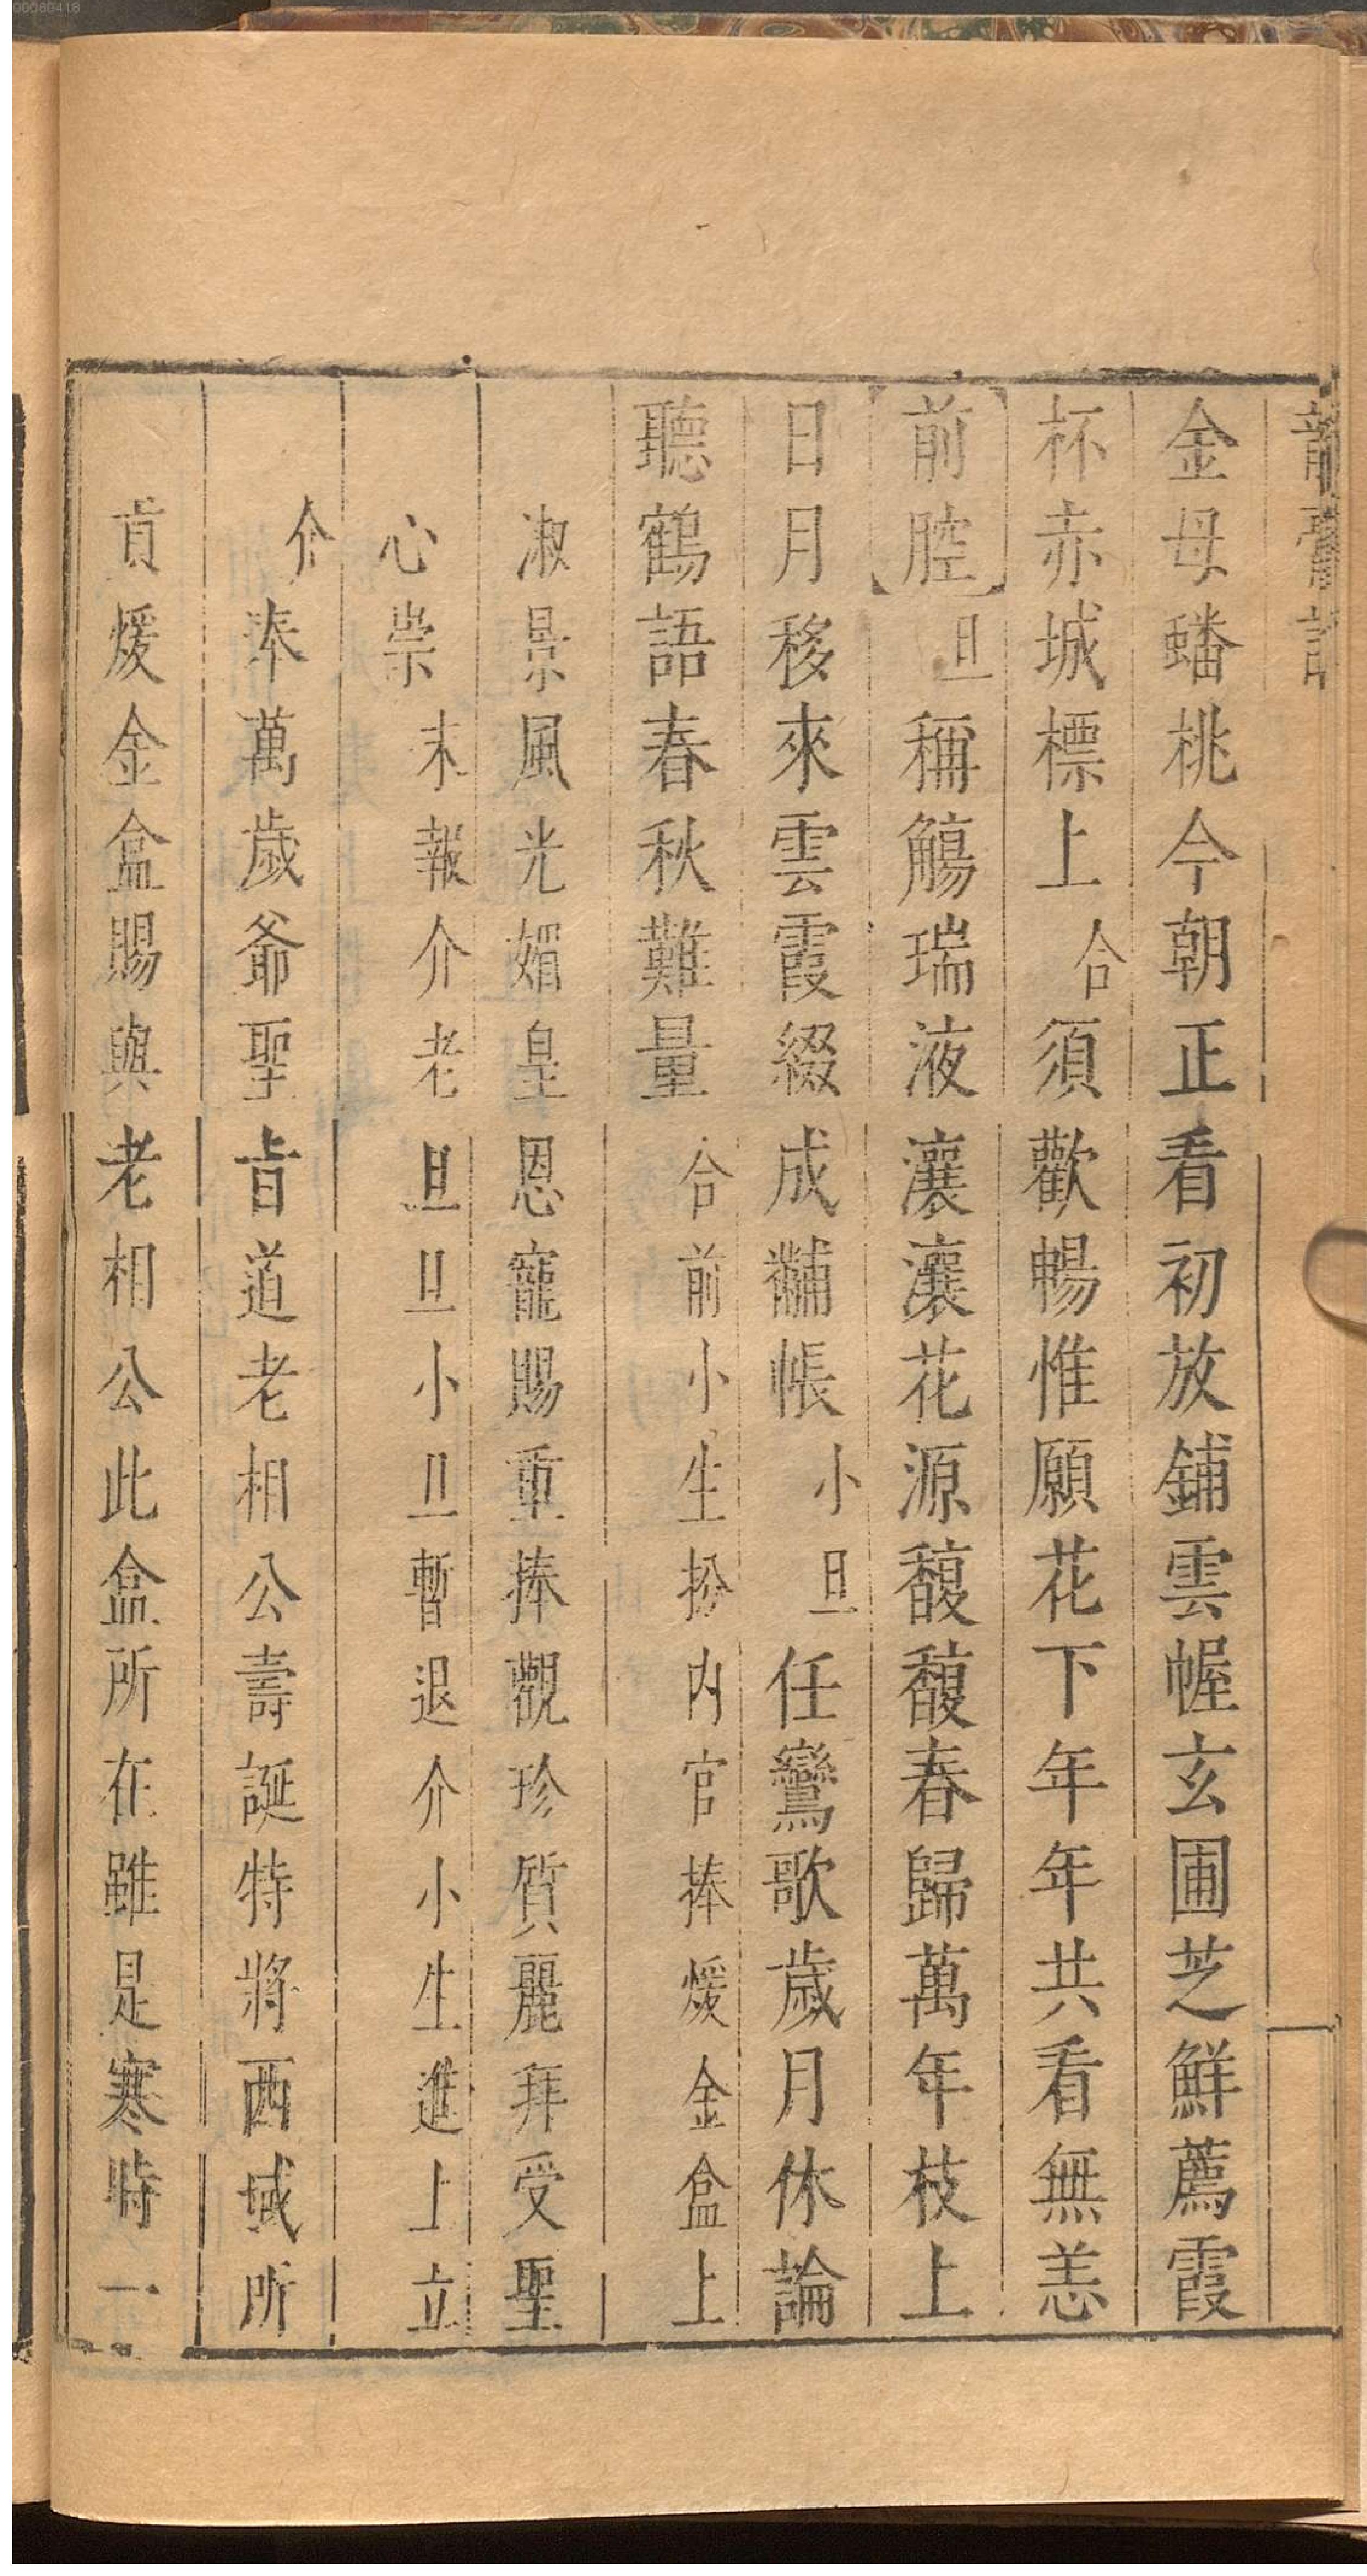 00080418
龍膏記
金母蟠桃今朝正看初放鋪雲幄玄圃芝鮮薦霞
杯赤城標上合須歡暢惟願花下年年共看無恙
【前腔】旦稱觴瑞液瀼瀼花源馥馥春歸萬年枝上
日月移來雲霞綴成黼帳小旦任鸞歌歲月休論
聽鶴語春秋難量合前小生扮內官捧煖金盒上
淑景風光媚皇恩寵賜重捧觀珍質麗拜受聖
心崇末報介老旦旦小旦暫退介小生進上立
介奉萬歲爺聖旨道老相公壽誕特將西域所
貢煖金盒賜與老相公此盒所在雖是寒時一